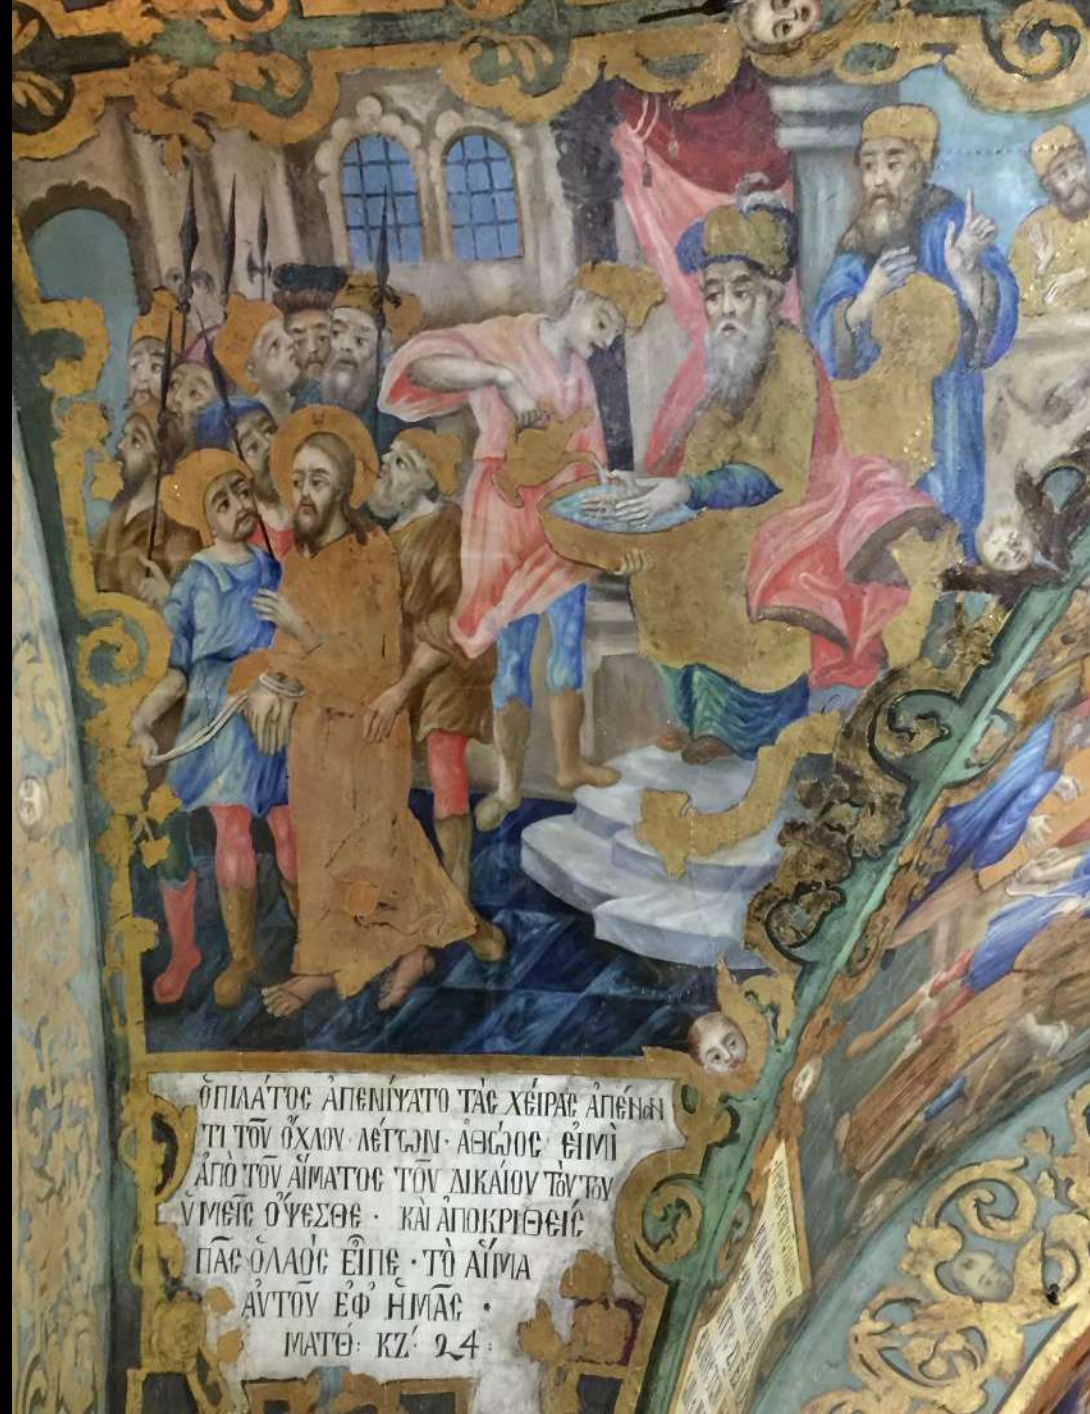 ὉΠΙΛΆΤΟϹ ἈΠΕΝΊΨΑΤΟ ΤᾺϹ ΧΕῖΡΑϹ ἈΠΈΝΑΝ
ΤΙ ΤΟῦ ὌΧΛΟΥ· ΛΈΓΩΝ· ἈΘΩ͂ΌϹ ΕἸΜῚ
ἈΠῸ ΤΟῦ ΑἽΜΑΤΟϹ ΤΟῦ ΔΙΚΑΊΟΥ ΤΟΎΤΟΥ
ὙΜΕΙ͂Ϲ ὌΨΕΣΘΕ· ΚΑῚ ἈΠΟΚΡΙΘΕΙϹ́
ΠΑ͂Ϲ ὉΛΑΌϹ ΕἾΠΕ· ΤῸ ΑἾΜΑ
ἈΥΤΟῦ ἘΦ' ἩΜΑ͂Ϲ·
ΜΑΤΘ: ΚΖ´ 24·